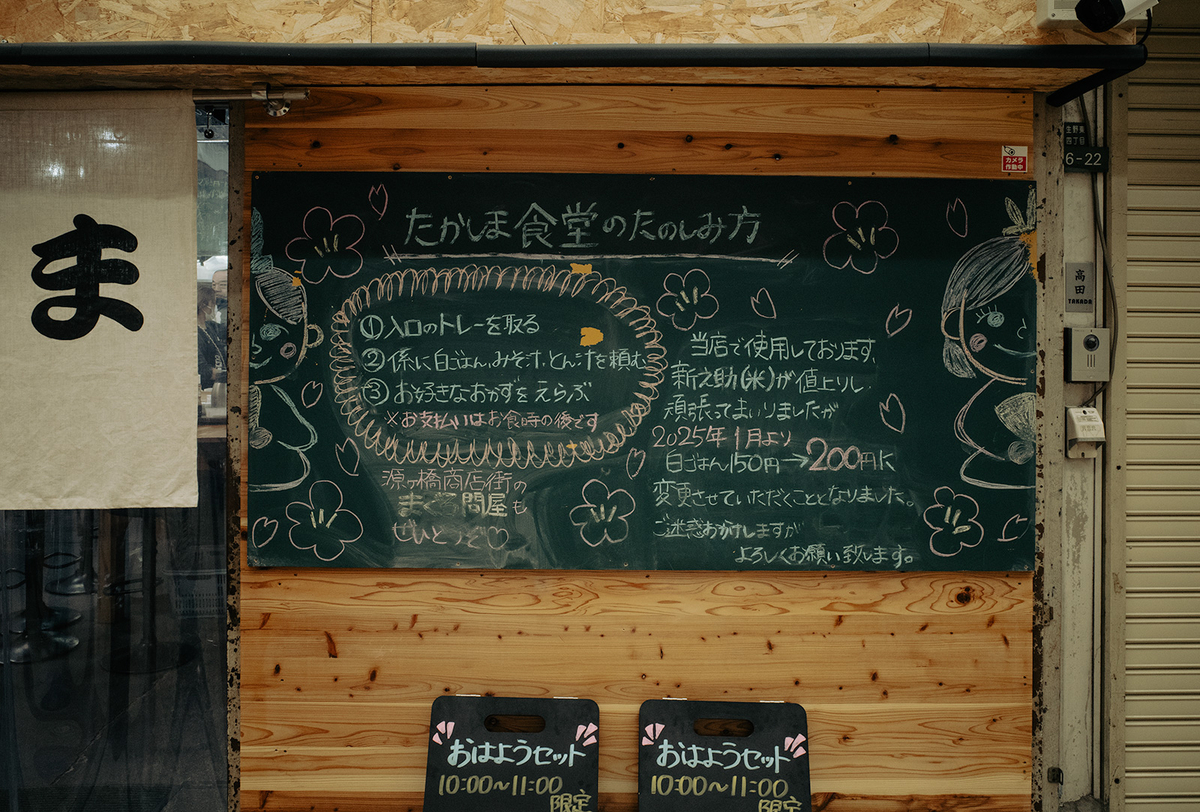 ま
たかしま食堂のたのしみ方
①入口のトレーを取る
②係に白ごはん、みそ汁、とん汁を頼む
③お好きなおかずをえらぶ
※お支払いはお食事の後です
源ヶ橋商店街の
まぐろ問屋も
ぜひどうぞ♡
当店で使用しております、
新之助(米)が値上りし
頑張ってまいりましたが
2025年1月より
白ごはん150円→200円に
変更させていただくこととなりました。
ご迷惑おかけしますが
よろしくお願い致します。
カメラ
作動中
生野東
四丁目
6-22
高田
TAKADA
おはようセット
10:00〜11:00
限定
おはようセット
10:00〜11:00
限定